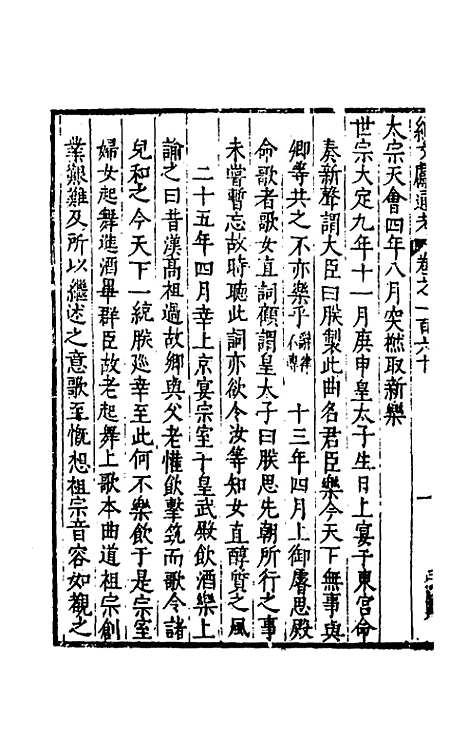 續文獻通考 卷之一百六十
太宗天會四年八月突撚取新樂
世宗大定九年十一月庚申皇太子生日上宴于東宮命
奏新聲謂大臣曰朕製此曲名君臣樂今天下無事與
卿等共之不亦樂乎辭律不傳 十三年四月上御睿思殿
命歌者歌女直詞顧謂皇太子曰朕思先朝所行之事
未嘗暫忘故時聽此詞亦欲令汝等知女直醇質之風
二十五年四月幸上京宴宗室于皇武殿飲酒樂上
諭之曰昔漢高祖過故鄉與父老懽飲擊筑而歌令諸
兒和之今天下一統朕廵幸至此何不樂飲于是宗室
婦女起舞進酒畢群臣故老起舞上歌本曲道祖宗創
業艱難及所以繼述之意歌至慨想祖宗音容如覩之
一